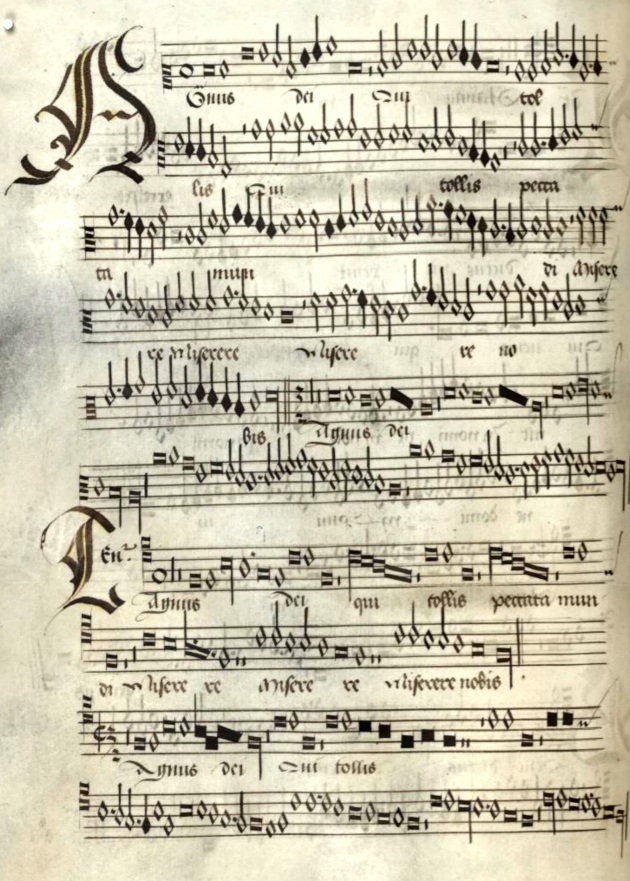 Agnus dei Qui tol
lis Qui tollis pecca
ta mun di Misere
re Miserere Misere re no
bis Agnus dei
Tenor
Agnus dei qui tollis peccata mun
di Misere re Misere re Miserere nobis
Agnus dei Qui tollis